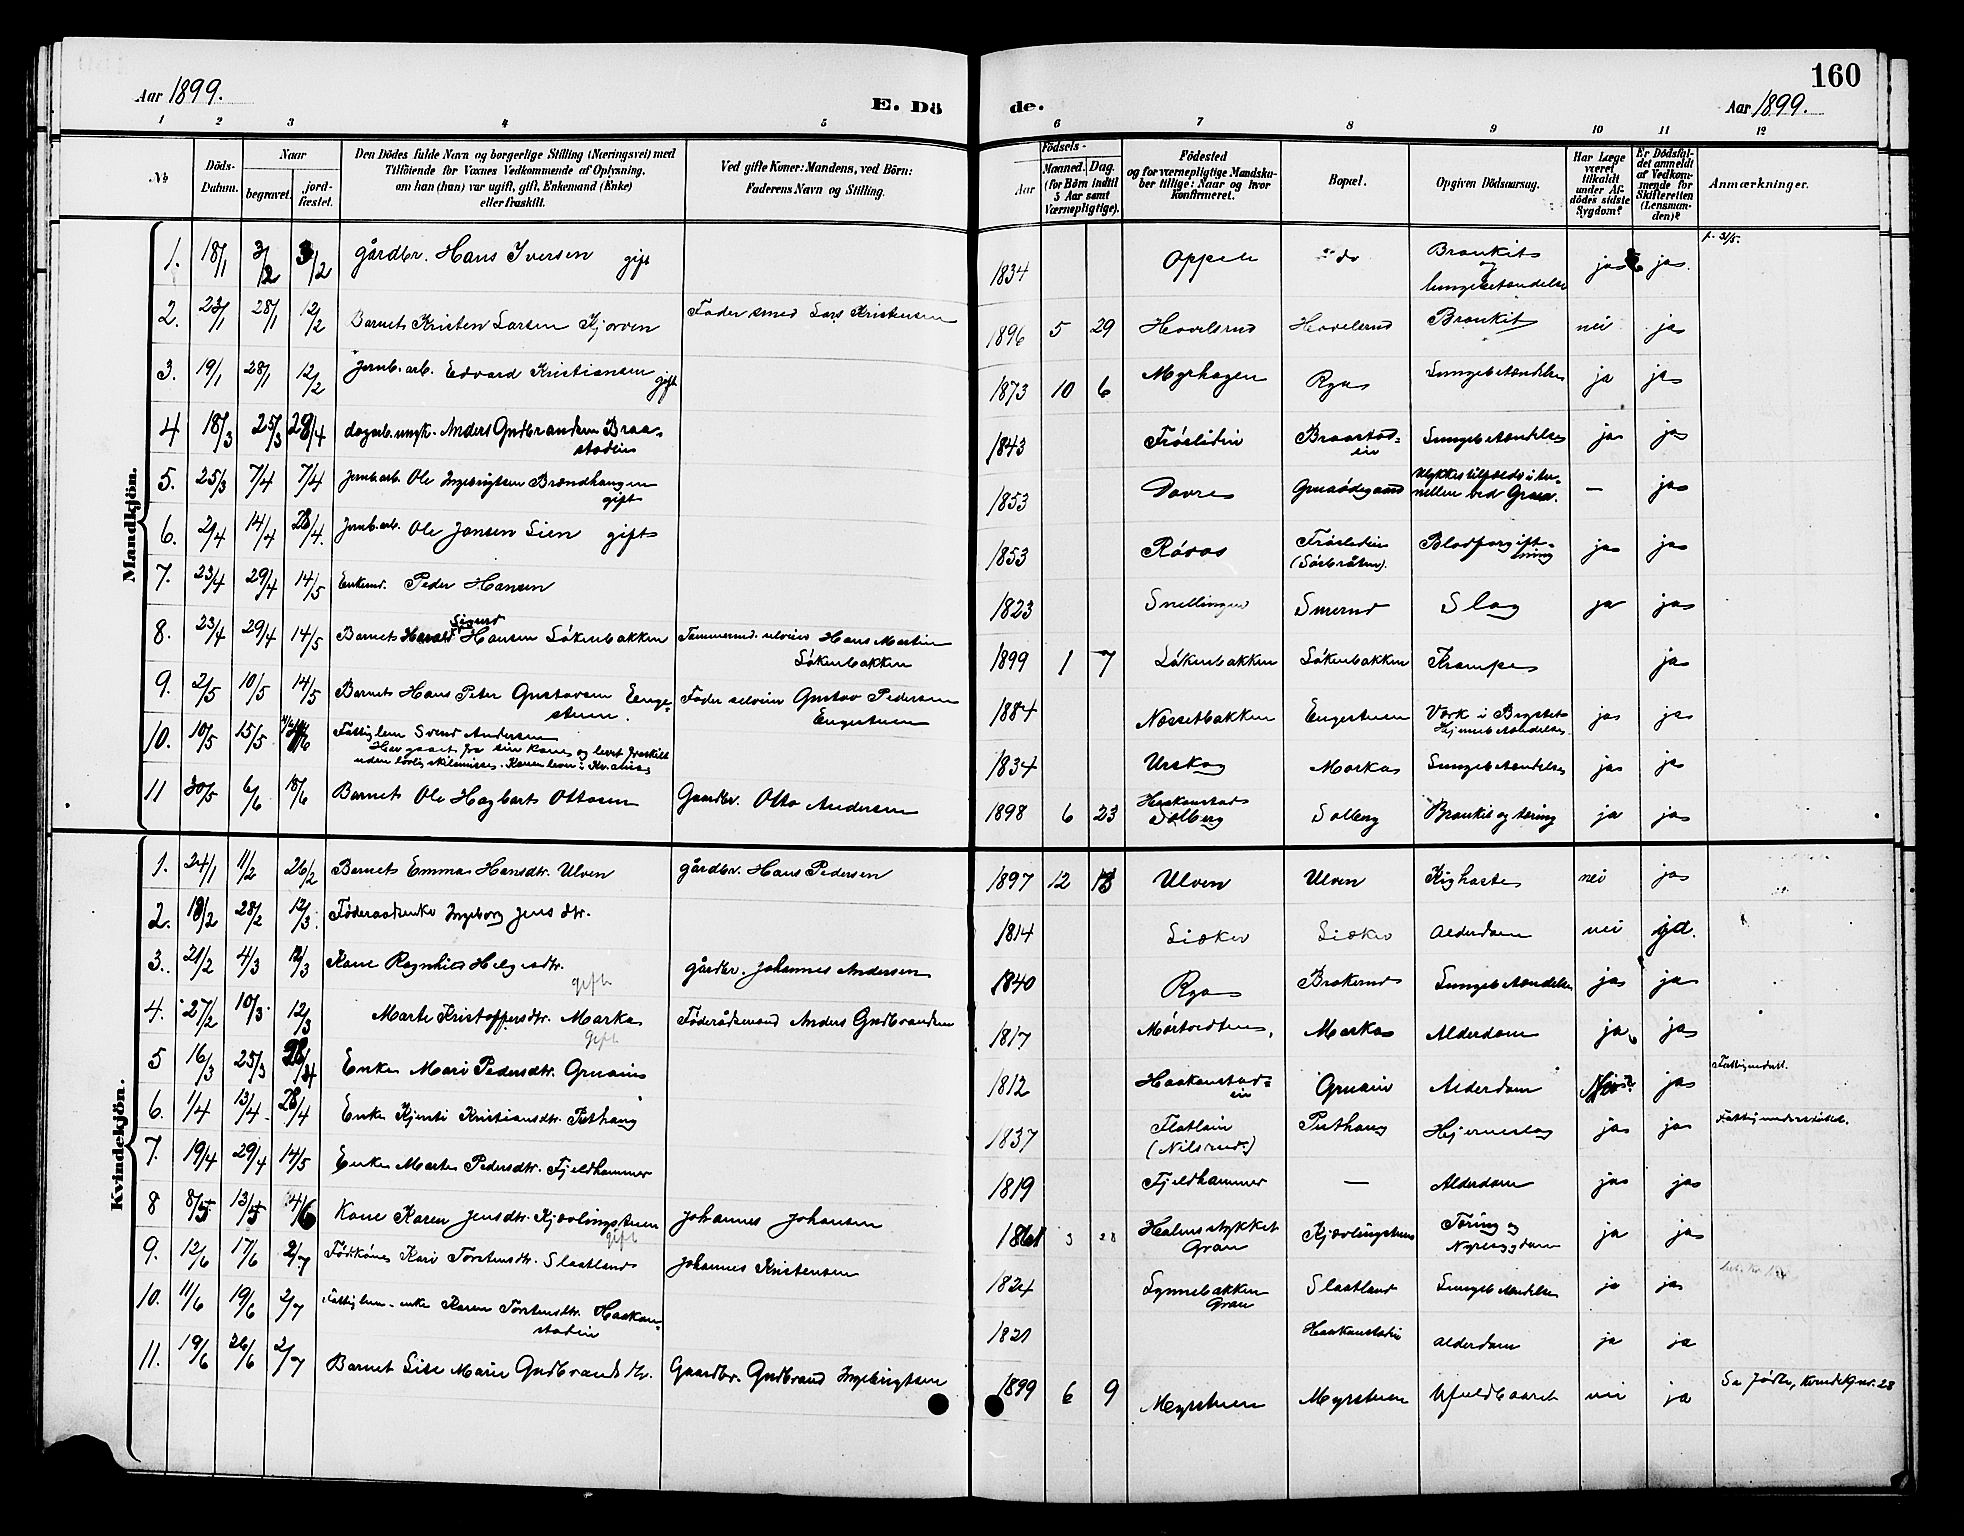 160
Aar 1899.
E. Dö
de.
Aar 1899.
1 2 3 4 5 6 7 8 9 10 11 12
№
Döds-Datum.
Naar
begravet.
jord-fæstet.
Den Dödes fulde Navn og borgerlige Stilling (Næringsvei) med
Tilföiende for Voxnes Vedkommende af Oplysning,
om han (hun) var ugift, gift, Enkemand (Enke)
eller fraskilt.
Ved gifte Koner: Mandens, ved Börn:
Faderens Navn og Stilling.
Födsels-
Aar
Maaned. Dag.
(for Börn indtil
5 Aar samt
Værnepligtige).
Födested
og for værnepligtige Mandska-
ber tillige: Naar og hvor
konfirmeret.
Bopæl.
Opgiven Dödsaarsag.
Har Læge
været
tilkaldt
under Af-
dödes sidste
Sygdom?
Er Dödsfal-
det anmeldt
af Vedkom-
mende for
Skifteretten
(Lensman-
den)?
Anmærkninger.
Mandkjön.
1. 18/1 3/2 3/2 gårdbr. Hans Iversen gift 1834 Oppele do Bronkit og lungebetændelse ja ja
2. 23/1 28/1 12/2 Barnet Kristen Larsen Kjorven Fader smed Lars Kristensen 1896 5 29 Hovelsrud Hovelsrud Bronkit nei ja
3. 19/1 28/1 12/2 Jernb. arb. Edvard Kristiansen gift 1873 10 6 Myrhagen Rya Lungebetændelse ja ja
4 18/3 25/3 28/4 dagarb. ungk. Anders Gudbrandsen Braa-
stadeie 1843 Fröslideie Braastad-
eie Lungebetændelse ja ja
5. 25/3 7/4 7/4 Jernb.arb. Ole Ingebrigtsen Brændhaugen
gift 1853 Dovre Gruaödegaard Ulykkestilfælde i tu-
nellen ved Grua. — ja
6. 2/4 14/4 28/4. Jernb.arb. Ole Jansen Lien gift 1853 Röros Fröslideie
(Sörbråten). Blodforgift-
ning ja ja
7. 23/4 29/4 14/5 Enkemd. Peder Hansen 1823 Snellingen Smerud Slag ja ja
8. 23/4 29/4 14/5 Barnet Harald Sigurd Hansen Lökenbakken Tømmermd. selveier Hans Martin
Lökenbakken 1899 1 7 Lökenbakken Lökenbakken Krampe ja
9. 2/5 10/5 14/5 Barnet Hans Peter Gustavsen Enge-
stuen. Fader selveier Gustav Pedersen
Engestuen 1884 Næssetbakken Engestuen Værk i Brystet
Hjernebetændelse. ja ja
10. 10/5 15/5 Fattiglem Svend Andersen
Har gaaet fra sin kone og levet fraskilt
uden lovlig skilsmisse. Konen lever i Kr.ania 1834 Urskog Marka Lungebetændelse ja ja
11 30/5 6/6 18/6 Barnet Ole Hagbart Ottosen Gaardbr. Otto Andersen 1898 6 23 Haakenstad
Solberg Solberg Bronkit og tæring ja ja
Kvindekjön.
1. 24/1 11/2 26/2 Barnet Emma Hansdtr. Ulven gårdbr. Hans Pedersen 1897 12 13 Ulven Ulven Kighoste nei ja
2. 18/2 28/2 12/3. Föderaadsenke Ingeborg Jensdtr. 1814 Lisker Lisker Alderdom nei ja.
3. 21/2 4/3 12/3 Kone Ragnhild Helgesdtr. gift gårdbr. Johannes Andersen 1840 Rya Brokerud Lungebetændelse ja ja
4. 27/2 10/3. 12/3 Marte Kristoffersdtr. Marka gift Föderådsmand Anders Gudbrandsen 1817 Mörtvedten Marka Alderdom ja ja
5 16/3 25/3 28/4 Enke Mari Pedersdtr. Gruaeie 1812 Haakenstad-
eie Gruaeie Alderdom Nei ja Fattigunderst.
6. 1/4 13/4. 28/4 Enke Kjersti Kristiansdtr. Puthaug 1837 Flatlaeie
(Nilsrud.) Puthaug Hjerneslag ja ja Fattigunderstöttet.
7. 19/4 29/4 14/5 Enke Marte Pedersdtr. Fjeldhammer 1819 Fjeldhammer — Alderdom ja ja
8 8/5 13/5 4/6 Kone Karen Jensdtr. Kjævlingstuen gift Johannes Johansen 1861 3 28 Halmstykket
Gran Kjævlingstuen Tæring og
Nyresygdom ja ja
9. 12/6 17/6 2/7 Födkone Kari Torstensdtr. Slaatland Johannes Kristensen 1824 Lynnebakken
Gran Slaatland Lungebetændelse ja ja
10. 11/6 19/6 2/7 Fattiglem-enke Karen Torstensdtr. Haakan-
stadeie 1821 Haakanstadeie Alderdom ja ja
11. 19/6 26/6 2/7 Barnet Lise Marie Gudbrandsdtr. Gaardbr. Gudbrand Ingebrigtsen 1899 6 9 Myrstuen Myrstuen Ufuldbaaret nei ja Se fødte, kvindekj. nr. 28